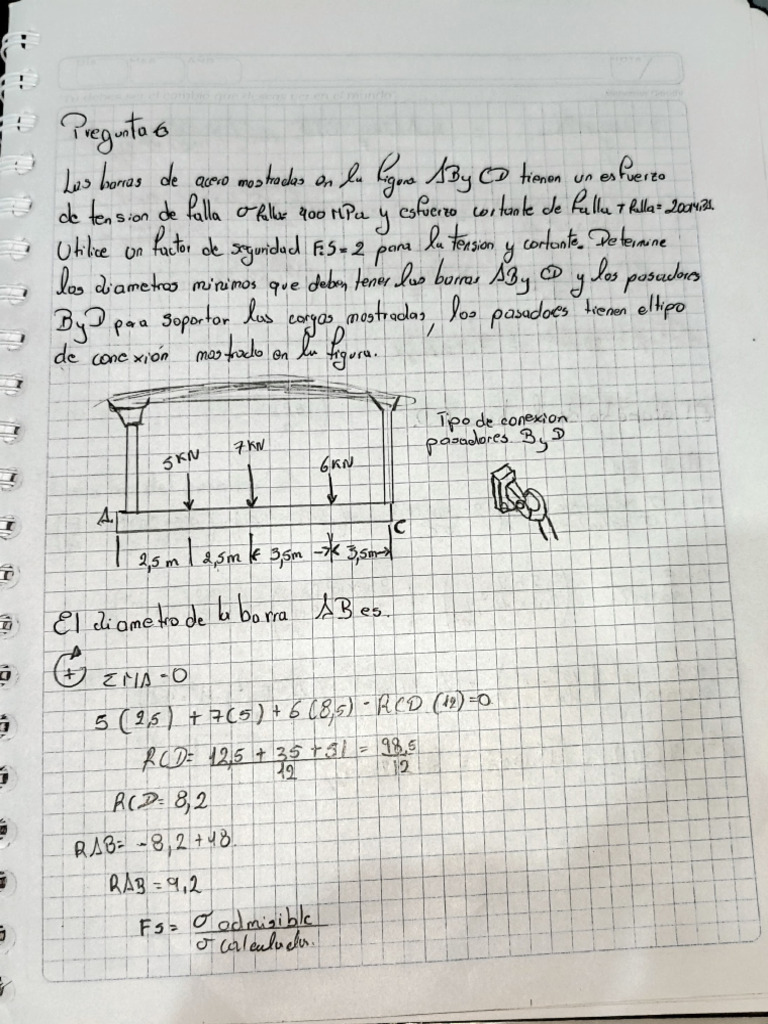 Pregunta 6
Las barras de acero mostradas en la figura AB y CD tienen un esfuerzo
de tension de falla σ falla= 400 MPa y esfuerzo cortante de falla τ falla= 200
Utilice un factor de seguridad F.S = 2 para la tension y cortante. Determine
los diametros minimos que deben tener las barras AB y CD y los pasadores
B y D para soportar las cargas mostradas, los pasadores tienen el tipo
de conexión mostrado en la figura.
Tipo de conexion
pasadores B y D
5KN 7KN 6KN
A C
2,5m 2,5m 3,5m 3,5m
El diametro de la barra AB es.
A
+ ΣMA=0
5 (2,5) + 7(5) + 6 (8,5) - RCD (12)=0
RCD= 12,5 + 35 + 51 / 12 = 98,5 / 12
RCD= 8,2
RAB= -8,2 +18.
RAB = 9,2
FS= σ admisible / σ calculada.